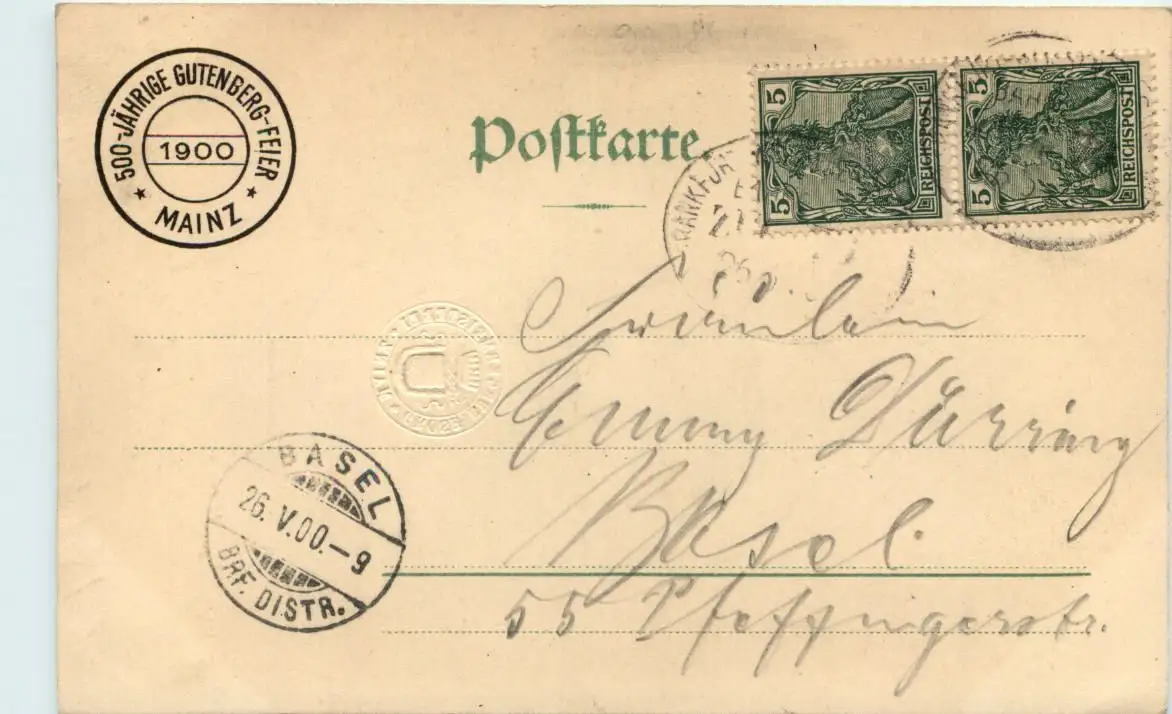 500-JÄHRIGE GUTENBERG-FEIER
1900
* MAINZ *
Postkarte
5 5 REICHSPOST
5 5 REICHSPOST
FRANKFUR
BAH
Fräulein
Emmy Düring
Basel
55 Pfeffingerstr.
BASEL
26. V. 00.–9
BRF. DISTR.